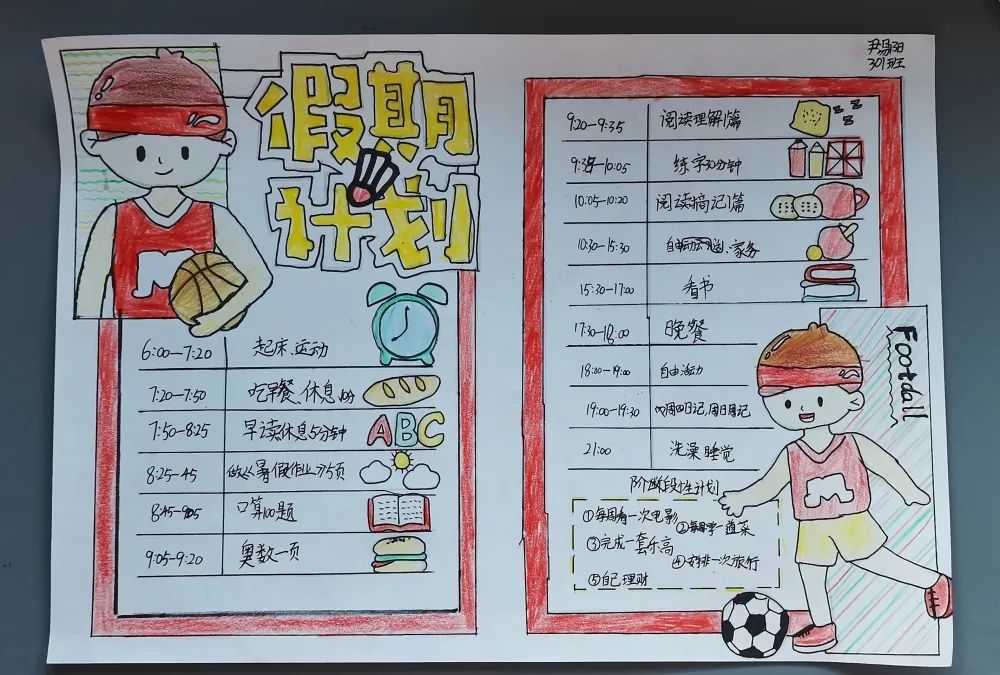 假期
计划
6:00—7:20 起床、运动
7:20—7:50 吃早餐、休息
7:50—8:25 早读休息5分钟
ABC
8:25—45 做《暑假作业》75页
8:45—905 口算100题
9:05—9:20 奥数一页
尹易阳
301班
9:20—9:35 阅读理解1篇
zzz
9:35—10:05 练字30分钟
10:05—10:20 阅读摘记1篇
10:30—15:30 自由 家务
15:30—17:00 看书
17:30—18:00 晚餐
18:00—19:00 自由活动
19:00—19:30 周四日记,周日周记
21:00 洗澡睡觉
Football
阶段性计划
①每周看一次电影
②每周学一道菜
③完成一套乐高
④安排一次旅行
⑤自己理财